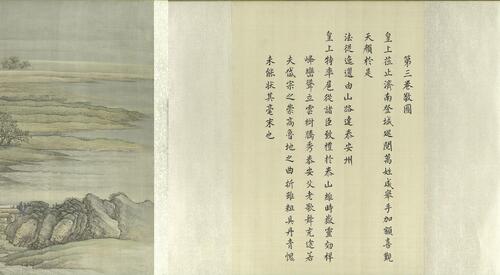 第三卷敬圖
皇上莅止濟南登城延閱萬姓咸舉手加額喜觀
天顏於是
法從逶迤由山路達泰安州
皇上特率扈從諸臣致禮於泰山維時嶽靈効祥
峰巒聳立雲樹騰秀泰安父老歌舞充途若
夫岱宗之崇高魯地之曲折雖粗具丹青愧
未能狀其毫末也